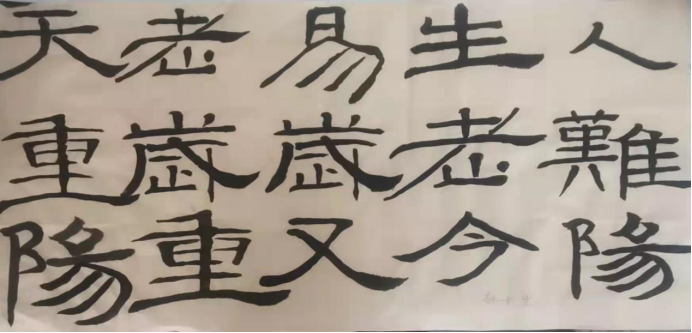 人生易老天
難老歲歲重
陽今又重陽